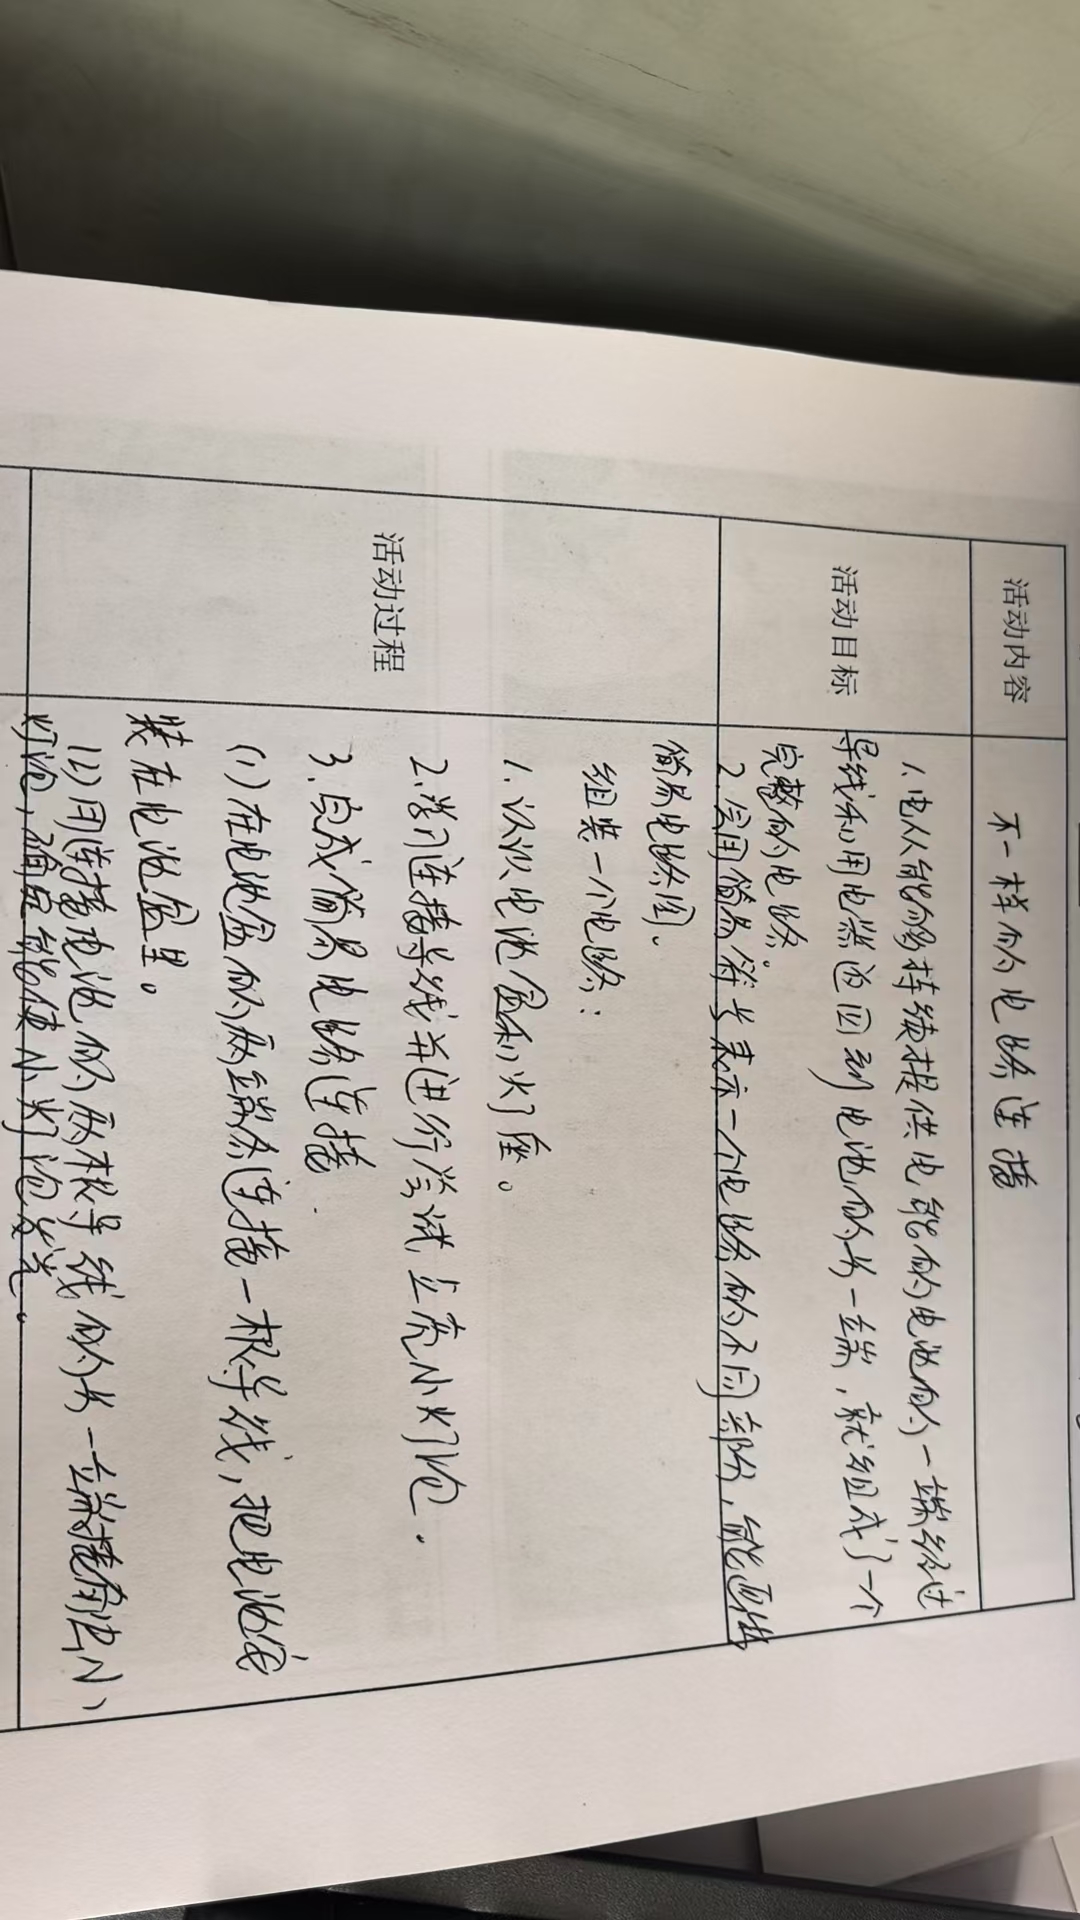 活动内容
不一样的电路连接
活动目标
1.电从能够持续提供电能的电池的一端经过
导线和用电器返回到电池的另一端，就组成了一个
完整的电路。
2.会用简易符号表示一个电路的不同部分，能画
简易电路图。
活动过程
组装一个电路：
1.认识电池盒和灯座。
2.学习连接导线并进行尝试点亮小灯泡。
3.完成简易电路连接
(1)在电池盒的两端各连接一根导线，把电池安
装在电池盒里。
(2)用连接电池的两根导线的另一端接触小
灯泡，确定能使小灯泡发光。